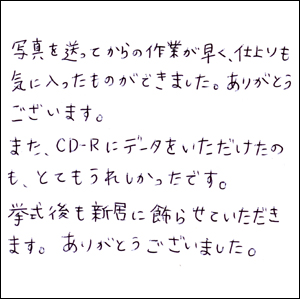 写真を送ってからの作業が早く、仕上りも
気に入ったものができました。ありがとう
ございます。
また、CD-Rにデータをいただけたの
も、とてもうれしかったです。
挙式後も新居に飾らせていただき
ます。ありがとうございました。